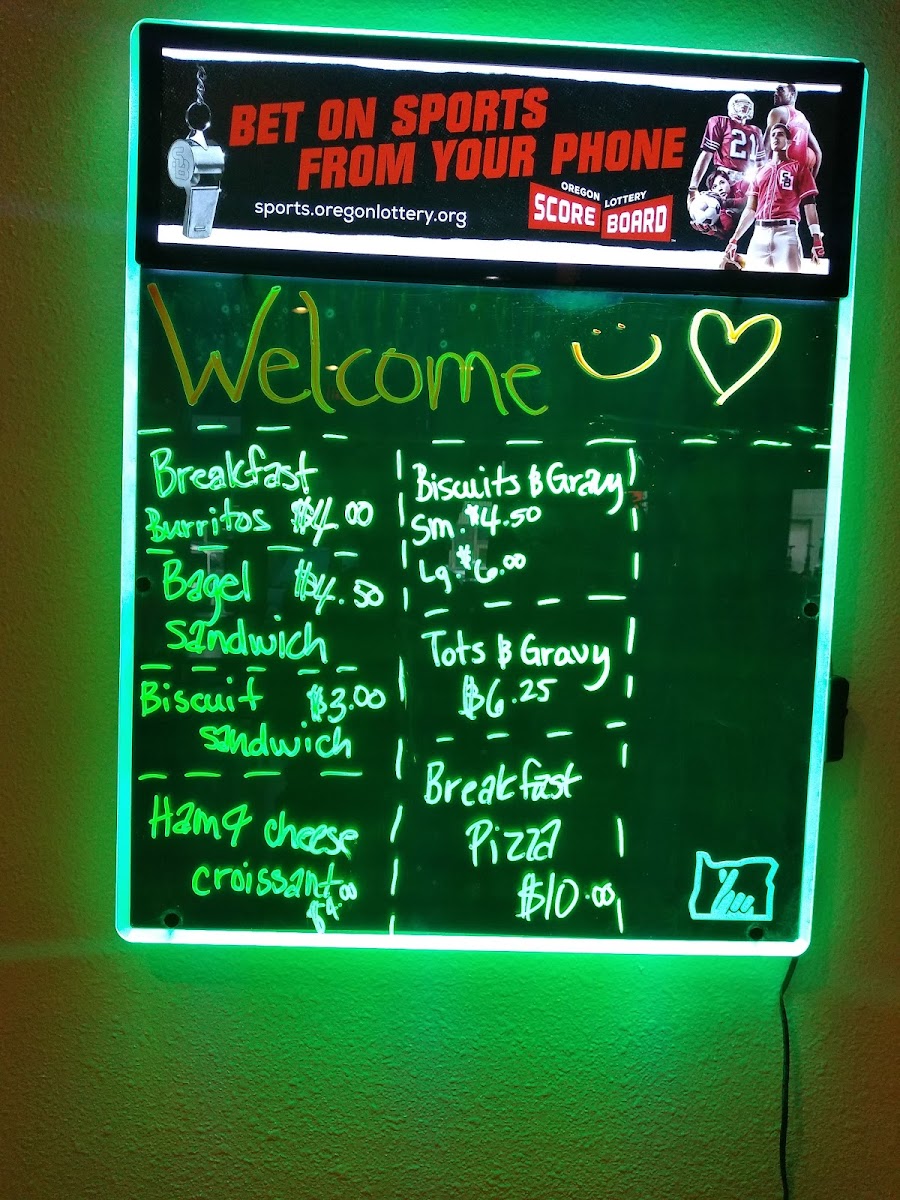 BET ON SPORTS
FROM YOUR PHONE
sports.oregonlottery.org
OREGON LOTTERY
SCORE BOARD
21
SB
Welcome
Breakfast
Burritos $4.00
Bagel $4.50
Sandwich
Biscuit $3.00
Sandwich
Ham & cheese
croissant
$4.00
Biscuits & Gravy
Sm. $4.50
Lg. $6.00
Tots & Gravy
$6.25
Breakfast
Pizza
$10.00